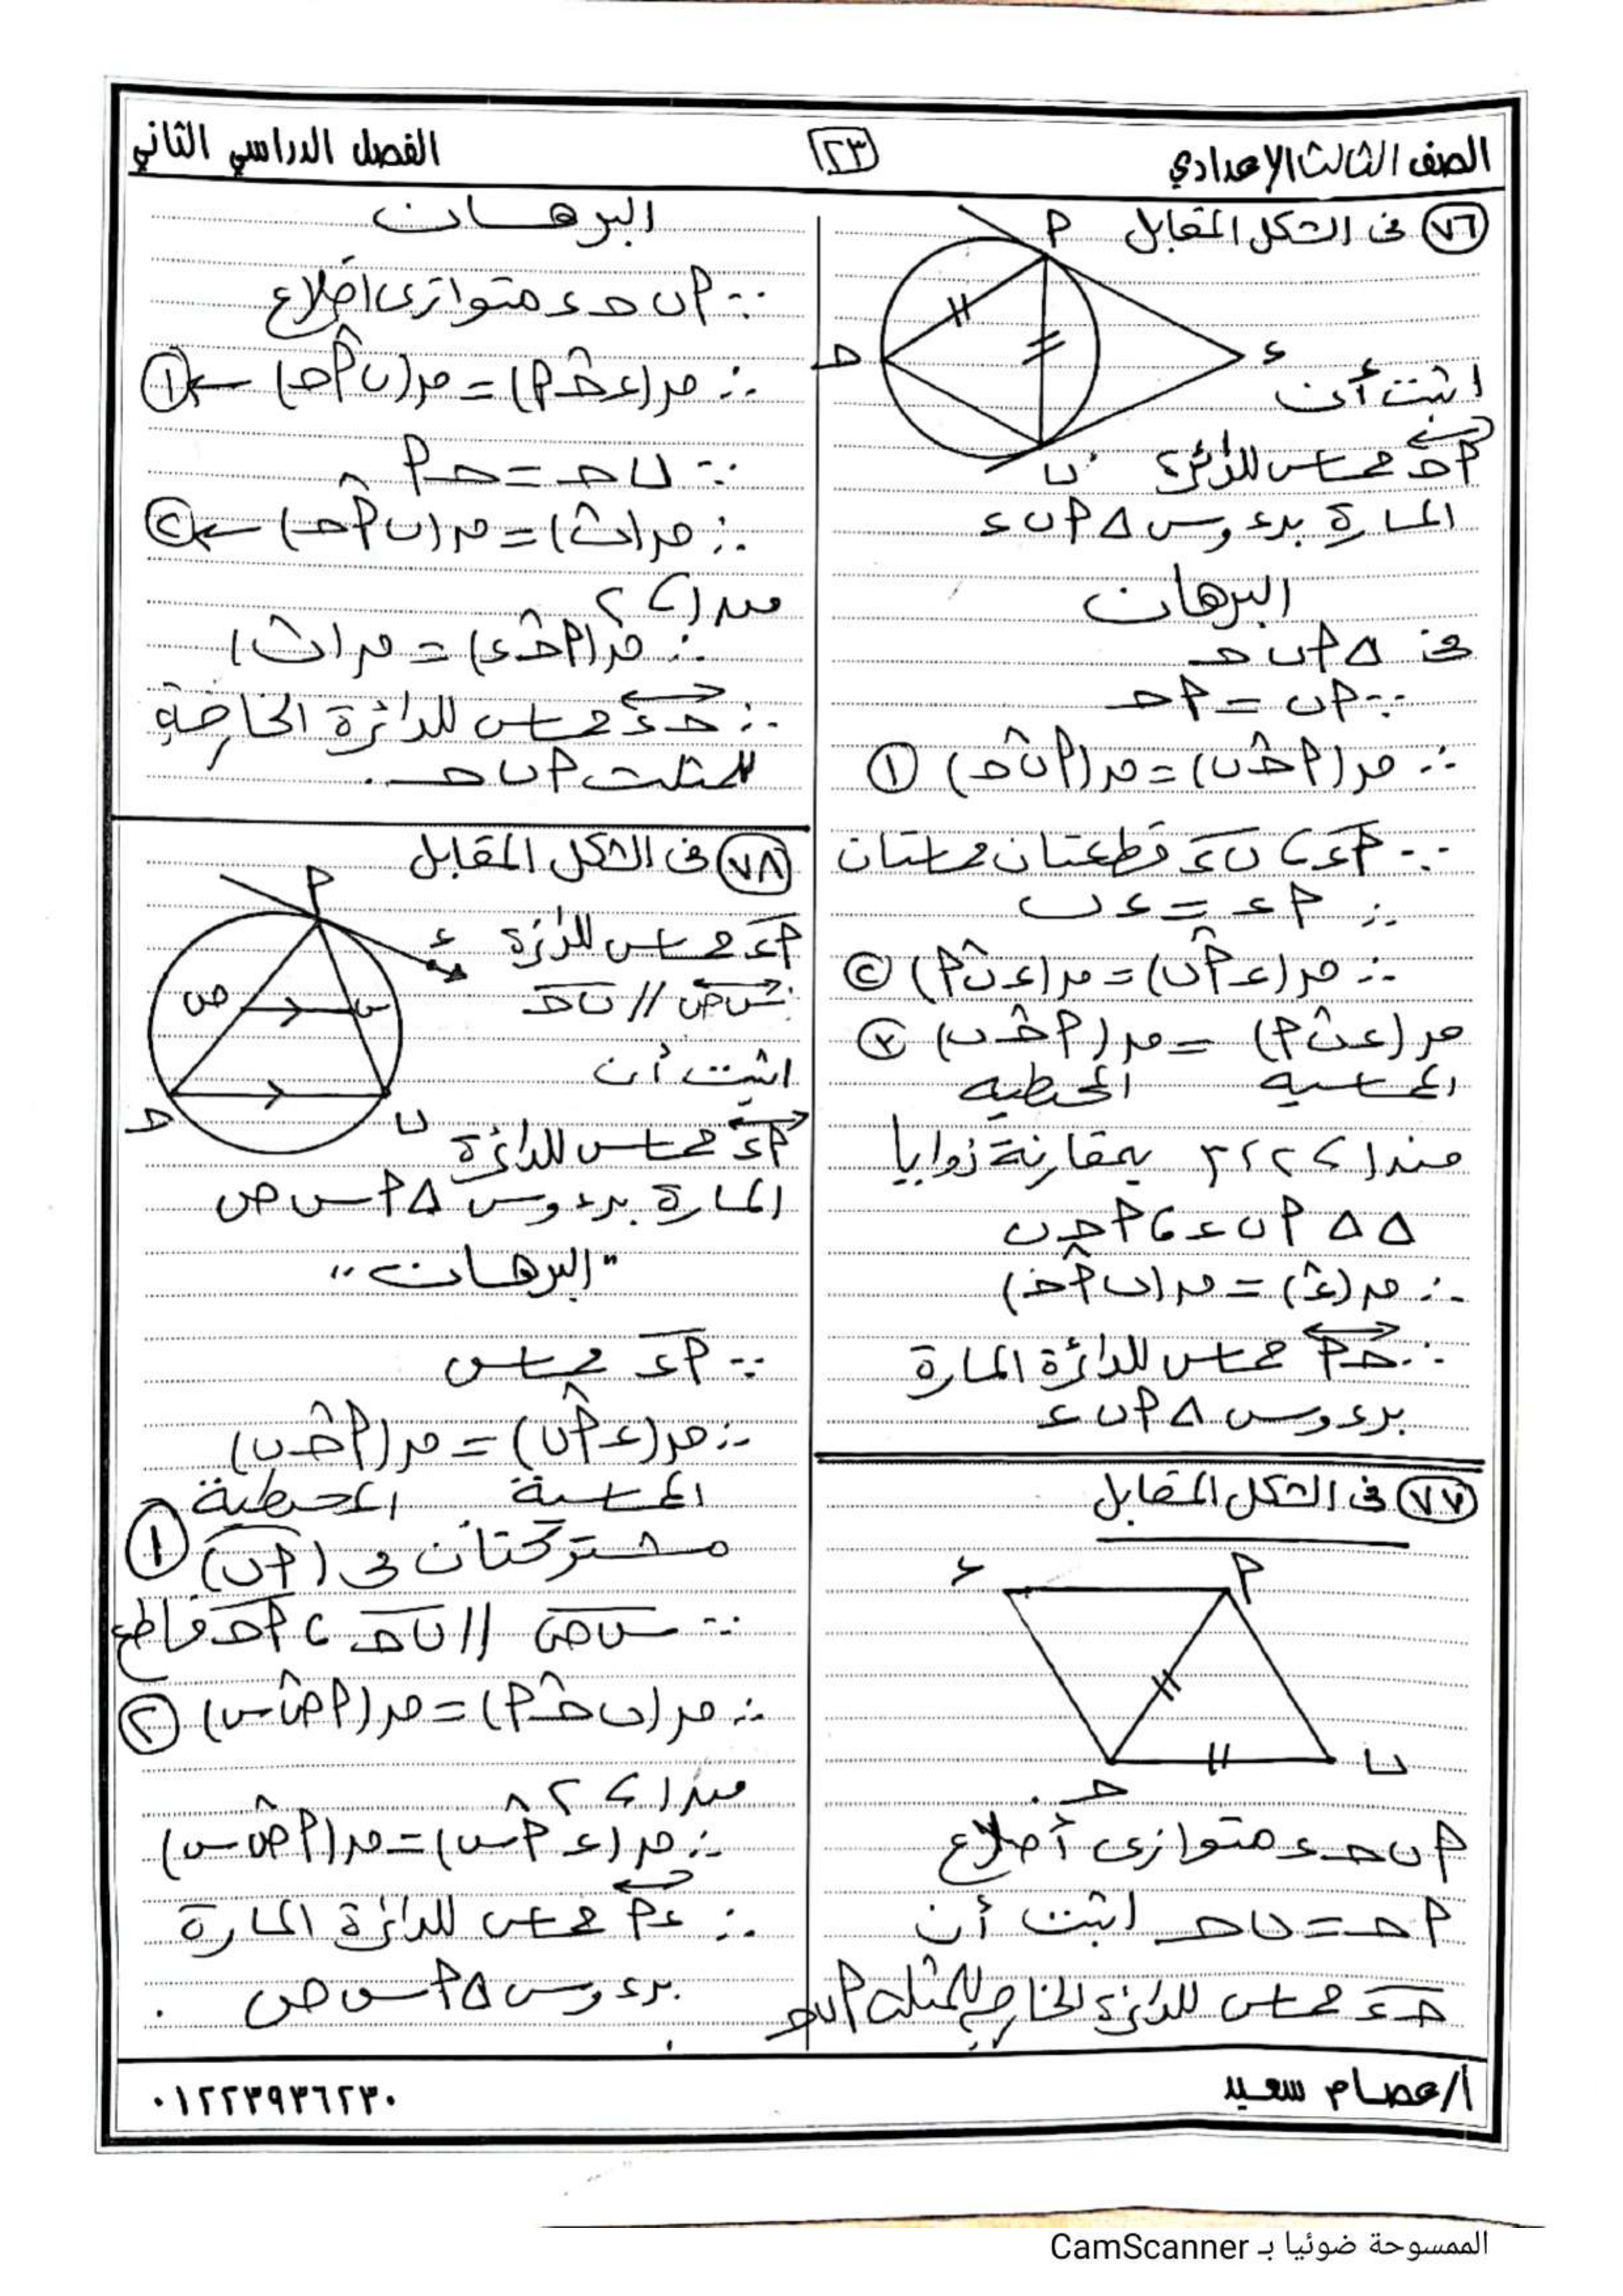 الصف الثالث الإعدادي
٢٣
الفصل الدراسي الثاني
٧٦ فى الشكل المقابل
م
د
ء
ب
اثبت أن
م حـ مماس للدائرة
المارة برءوس △ م ب ء
البرهان
فى △ م ب حـ
∵ م ب = م حـ
∴ م(م حـ ب) = م(م ب حـ) ١
∵ م ء ، ب ء قطعتان مماستان
∴ م ء = ء ب
∴ م(ء م ب) = م(ء ب م) ٢
م(ء ب م) = م(م حـ ب) ٣
المماسيه المحيطيه
من ١ ، ٢ ، ٣ بمقارنة زوايا
△△ م ب ء ، م حـ ب
∴ م(ء) = م(ب م حـ)
∴ حـ م مماس للدائرة المارة
برءوس △ م ب ء
٧٧ فى الشكل المقابل
ء
م
ب
حـ
م ب حـ ء متوازى أضلاع
م حـ = ب حـ اثبت أن
حـ ء مماس للدائرة الخارجة للمثلث م ب حـ
البرهان
∵ م ب حـ ء متوازى اضلاع
∴ م(ء حـ م) = م(ب م حـ) ← ١
∵ ب حـ = حـ م
∴ م(ب) = م(ب م حـ) ← ٢
من ١ ، ٢
∴ م(م حـ ء) = م(ب)
∴ حـ ء مماس للدائرة الخارجة
للمثلث م ب حـ .
٧٨ فى الشكل المقابل
م
ء
ص
س
حـ
ب
م ء مماس للدائرة
س ص // ب حـ
اثبت أن
م ء مماس للدائرة
المارة برءوس △ م س ص
"البرهان"
∵ م ء مماس
∴ م(ء م ب) = م(م حـ ب)
المماسية المحيطية
مشتركتان فى (م ب) ١
∵ س ص // ب حـ ، م حـ قاطع
∴ م(ب حـ م) = م(م ص س) ٢
من ١ ، ٢
∴ م(ء م س) = م(م ص س)
∴ ء م مماس للدائرة المارة
برءوس △ م س ص .
أ/عصام سعيد
٠١٢٢٣٩٣٦٢٣٠
الممسوحة ضوئيا بـ CamScanner